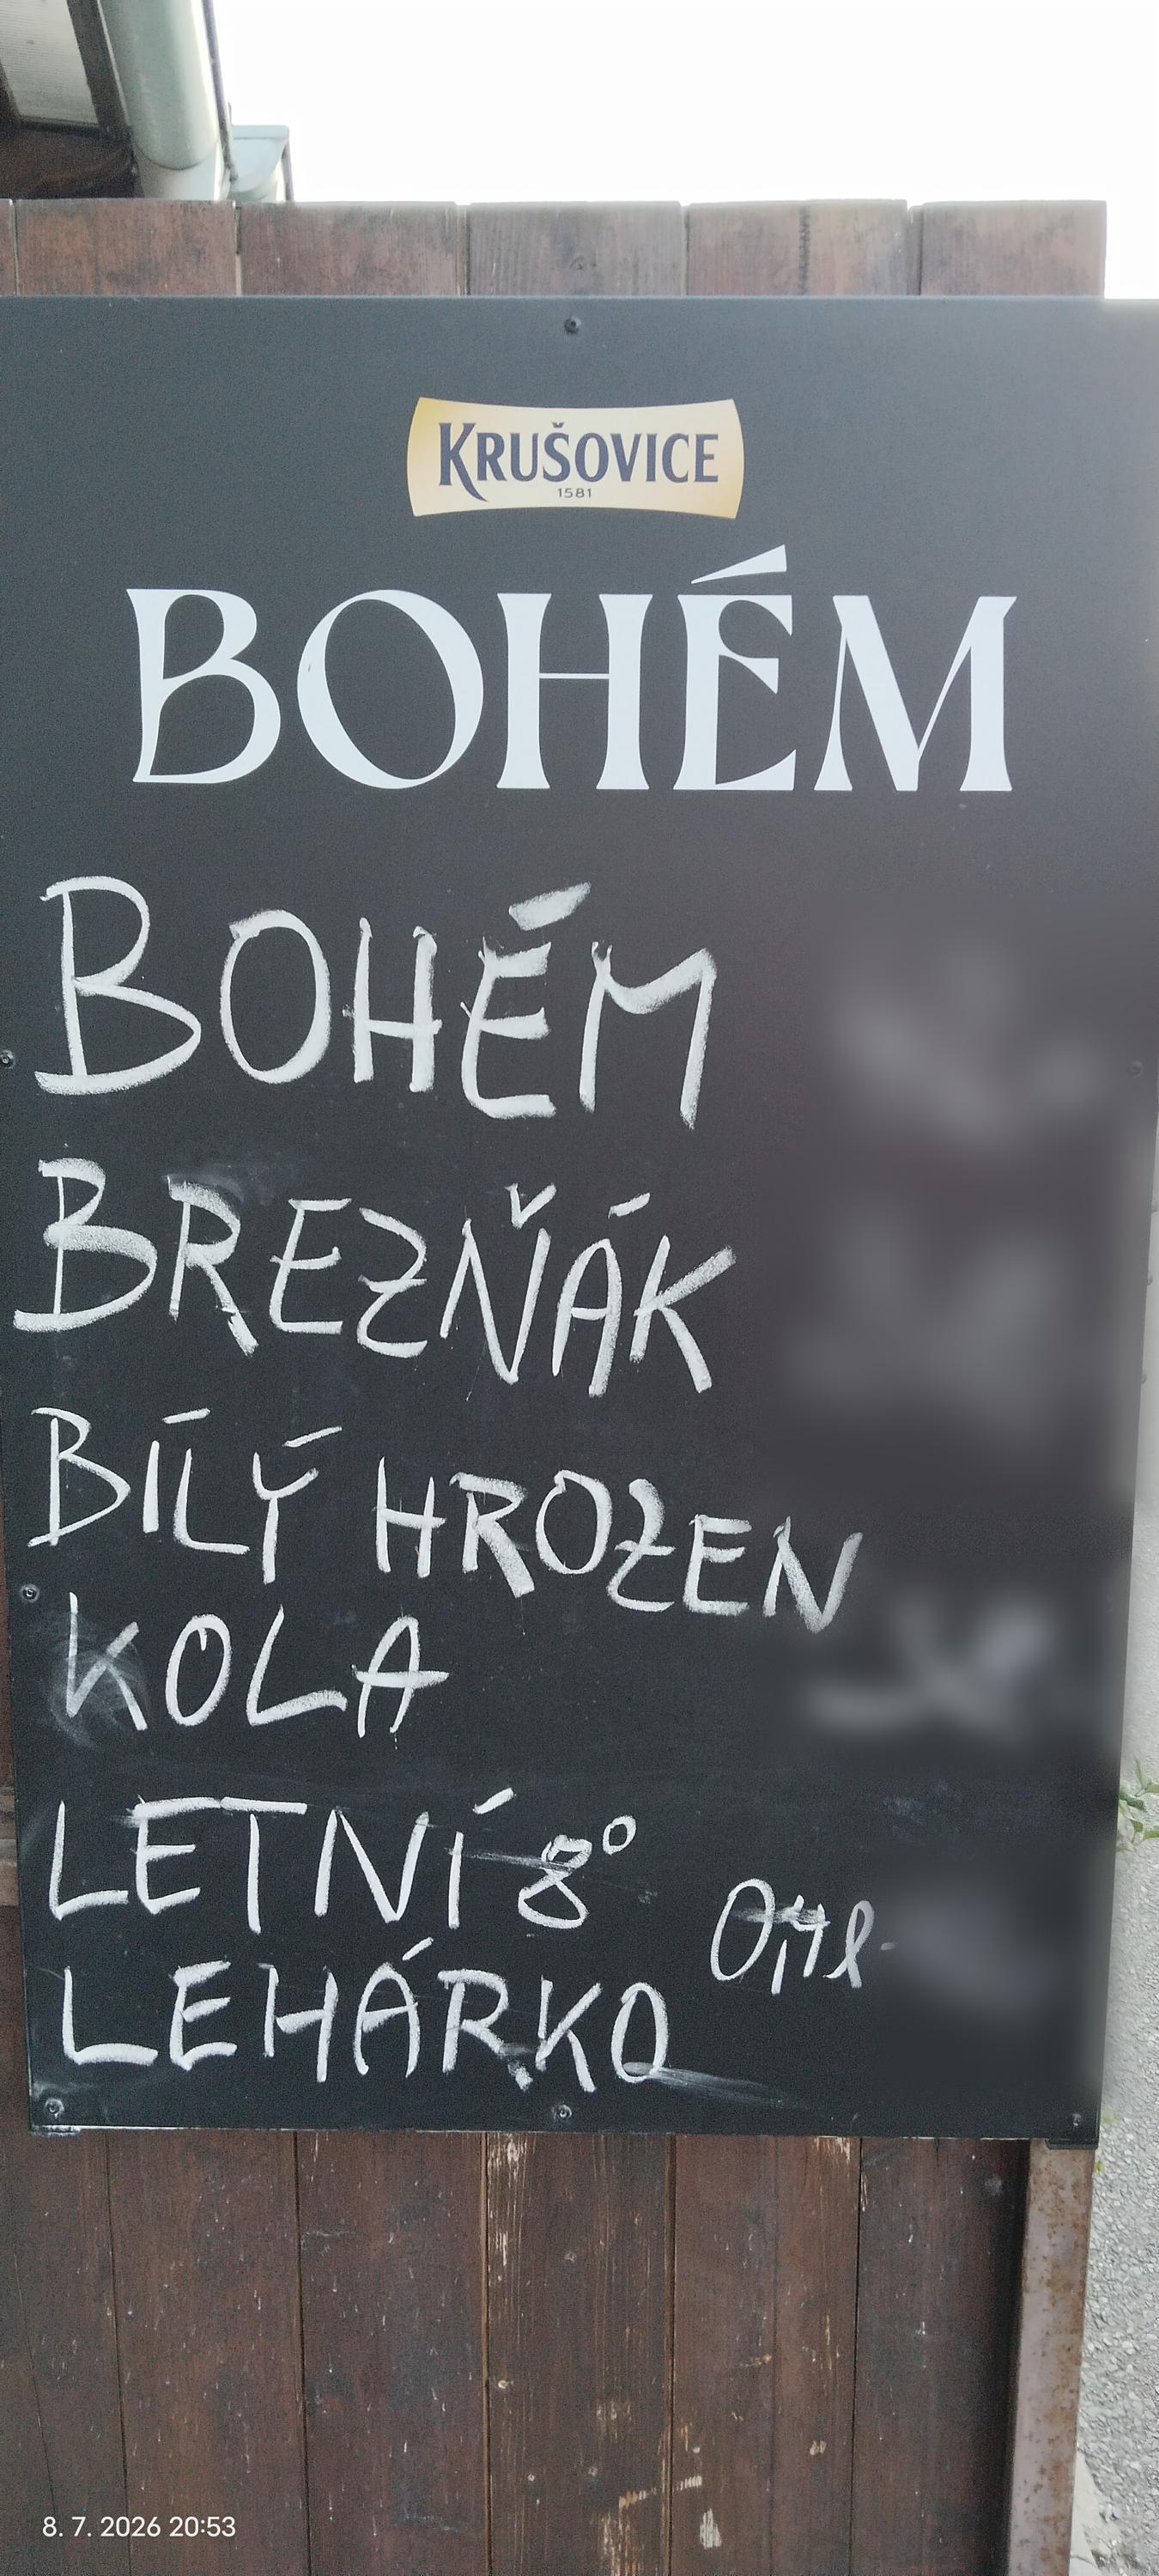 KRUŠOVICE
1581
BOHÉM
BOHÉM
BREZŇÁK
BÍLÝ HROZEN
KOLA
LETNÍ 8°
0,4l
LEHÁRKO
8. 7. 2026 20:53